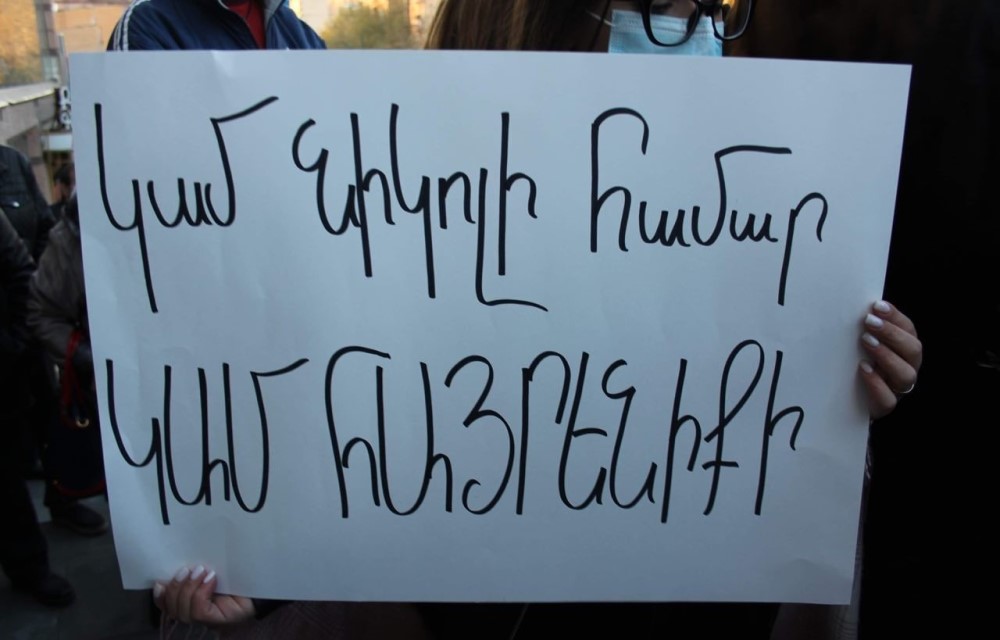 Կամ Նիկոլի համար
ԿԱՄ ՀԱՅՐԵՆԻՔԻ